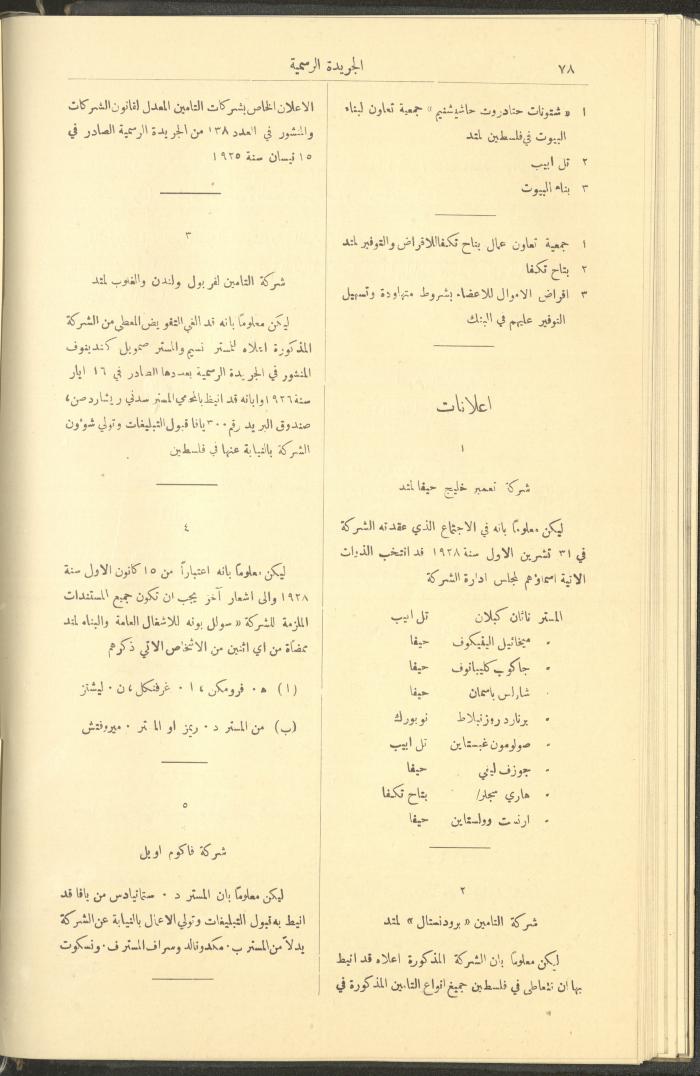 ٧٨
الجريدة الرسمية
١ « شتونات حنادروت حاشيشفيم » جمعية تعاون لبناء
البيوت في فلسطين لمتد
٢ تل ابيب
٣ بناء البيوت
١ جمعية تعاون عمال بتاح تكفا للاقراض والتوفير لمتد
٢ بتاح تكفا
٣ اقراض الاموال للاعضاء بشروط متهاودة وتسهيل
التوفير عليهم في البنك
اعلانات
١
شركة تعمير خليج حيفا لمتد
ليكن معلوماً بانه في الاجتماع الذي عقدته الشركة
في ٣١ تشرين الاول سنة ١٩٢٨ قد انتخب الذوات
الاتية اسماؤهم لمجلس ادارة الشركة
المستر ناثان كبلان تل ابيب
" ميخائيل البفيكوف حيفا
" جاكوب كليبانوف حيفا
" شارلس باسمان حيفا
" برنارد روزنبلاط نويورك
" صولومون غبستاين تل ابيب
" جوزف ليفي حيفا
" هاري سجلر بتاح تكفا
" ارنست وولستاين حيفا
٢
شركة التامين « برودنستال » لمتد
ليكن معلوماً بان الشركة المذكورة اعلاه قد انيط
بها ان تتعاطى في فلسطين جميع انواع التامين المذكورة في
الاعلان الخاص بشركات التامين المعدل لقانون الشركات
والمنشور في العدد ١٣٨ من الجريدة الرسمية الصادر في
١٥ نيسان سنة ١٩٢٥
٣
شركة التامين لفربول ولندن والغلوب لمتد
ليكن معلوماً بانه قد الغي التفويض المعطى من الشركة
المذكورة اعلاه للمستر نسيم والمستر صمويل كندينوف
المنشور في الجريدة الرسمية بعددها الصادر في ١٦ ايار
سنة ١٩٢٦ وابانه قد انيط بالمحامي المستر سدني ريشاردصن،
صندوق البريد رقم ٣٠٠ يافا قبول التبليغات وتولي شؤون
الشركة بالنيابة عنها في فلسطين
٤
ليكن معلوماً بانه اعتباراً من ١٥ كانون الاول سنة
١٩٢٨ والى اشعار آخر يجب ان تكون جميع المستندات
الملزمة للشركة « سولل بونه للاشغال العامة والبناء لمتد
ممضاة من اي اثنين من الاشخاص الاتي ذكرهم
(ا) ه. فرومكن، ا. غرفنكل، ن. ليشتز
(ب) من المستر د. ريمز او المستر . ميروفتش
٥
شركة فاكوم اويل
ليكن معلوماً بان المستر د. ستماتيادس من يافا قد
انيط به قبول التبليغات وتولي الاعمال بالنيابة عن الشركة
بدلاً من المستر ب. مكدونالد وسراف المستر ف. ونسكوت